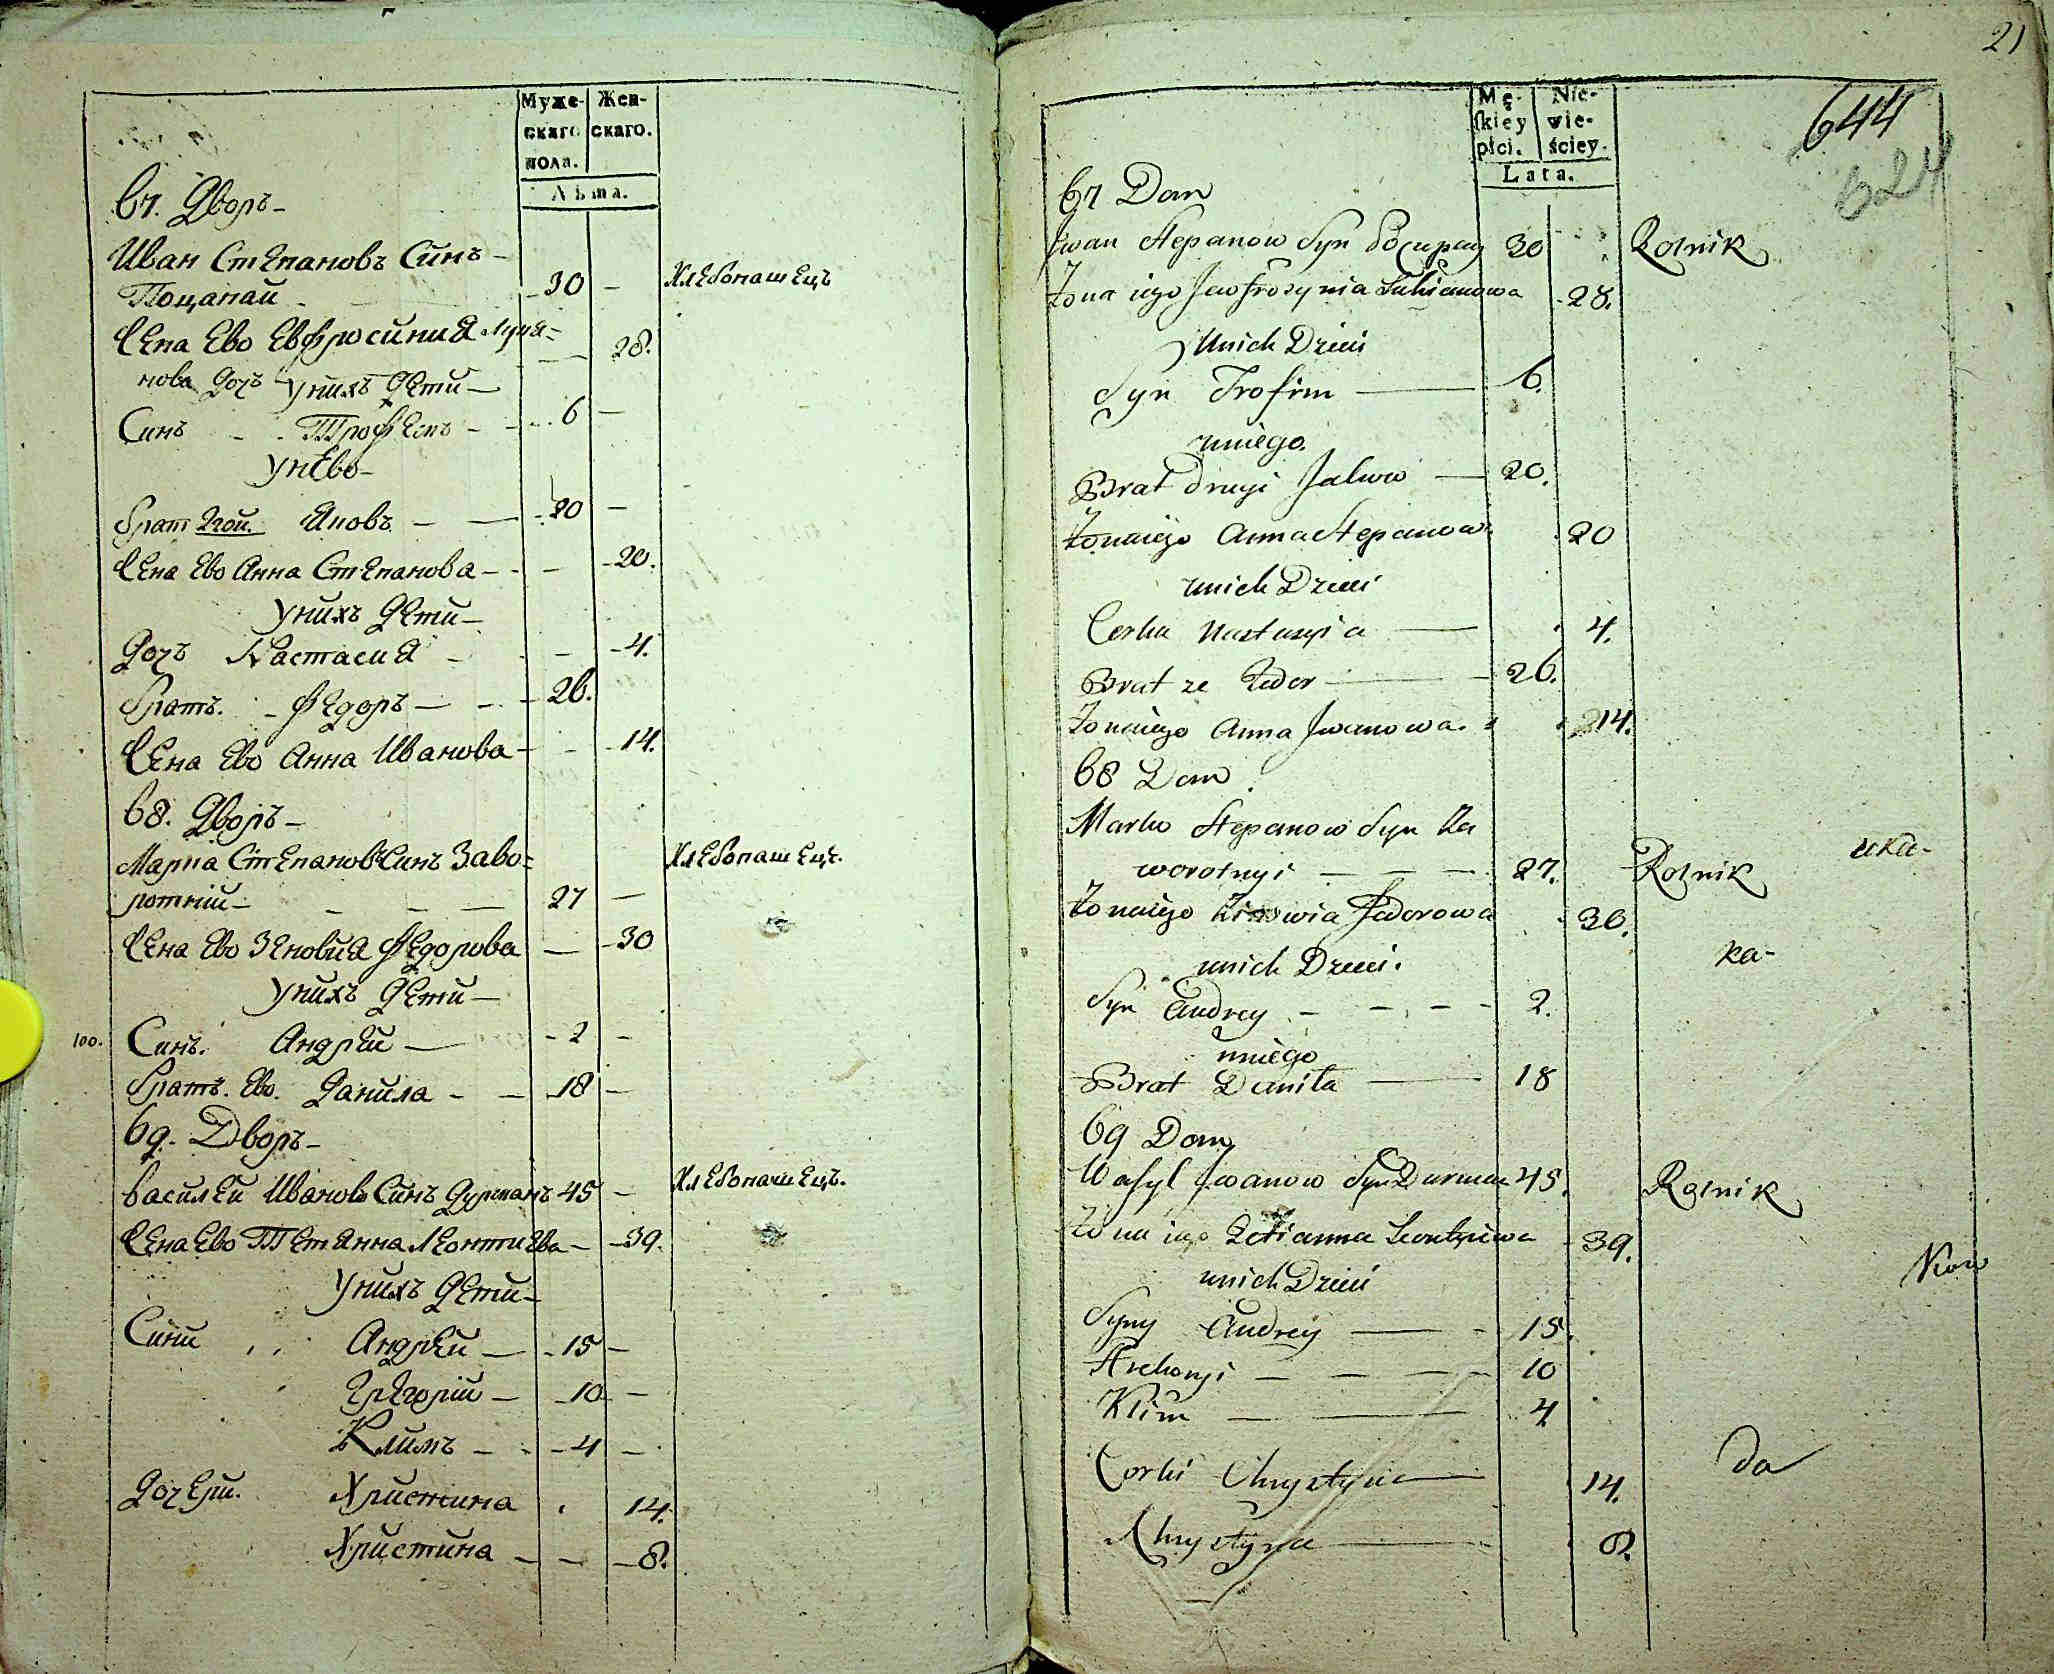 Муже- Жен-
скаго скаго.
пола.
Лѣта.
67. Дворъ-
Иван Степановъ Синъ-
Поцапай - 30 - Хлебопашецъ
Жена Ево Евфросиния Лукя=
нова Дочъ - 28.
Унихъ Дети-
Синъ - - Трофемъ - - 6 -
Унево-
Брат 2гой. Яковъ - - 20 -
Жена Ево Анна Степанова - - 20.
Унихъ Дети-
Дочъ Настасия - - 4.
Братъ. - Федоръ - - 26.
Жена Ево Анна Иванова - - 14.
68. Дворъ-
Марка Степановъ Синъ Заво= Хлебопашецъ.
ротний - - - - 27 -
Жена Ево Зеновия Федорова - - 30
Унихъ Дети-
100. Синъ. Андрей - - 2 -
Братъ. Ево. Данила - - 18 -
69. Дворъ-
Василей Ивановъ Синъ Дурманъ 45 - Хлебопашецъ.
Жена Ево Тетянна Леонтиева - - 39.
Унихъ Дети-
Сини Андрей - - 15 -
Григорий - - 10 -
Климъ - - 4 -
Дочери. Христина 14.
Христина - - - 8.
21
Mę- Nie-
skiey wie-
płci. ściey.
Lata.
644
624
67 Dom
Iwan Stepanow Syn Pocupay 30 Rolnik
Żona iego Jewfrozynia Łukianowa 28.
Unich Dzieci
Syn Trofim - 6.
uniego.
Brat drugi Jakow - 20.
Żona iego Anna Stepanowa 20
unich Dzieci
Corka Nastazyia - 4.
Brat ze Fedor - 26.
Żona iego Anna Iwanowa. 14.
68 Dom
Marko Stepanow Syn Za
worotnyi - - - 27. Rolnik
Żona iego Zinowia Fedorowa 30.
unich Dzieci.
ka-
Syn Andrey - - - - 2.
uniego
Brat Daniła - 18
69 Dom
Wasyl Iwanow Syn Durman 45. Rolnik
Żona iego Tetianna Leontyiewa 39.
unich Dzieci
Syny Andrey - - 15.
Hrehoryi - - - - 10
Klim - - 4
Corki Chrystyna - 14.
da
Chrystyna - 8.